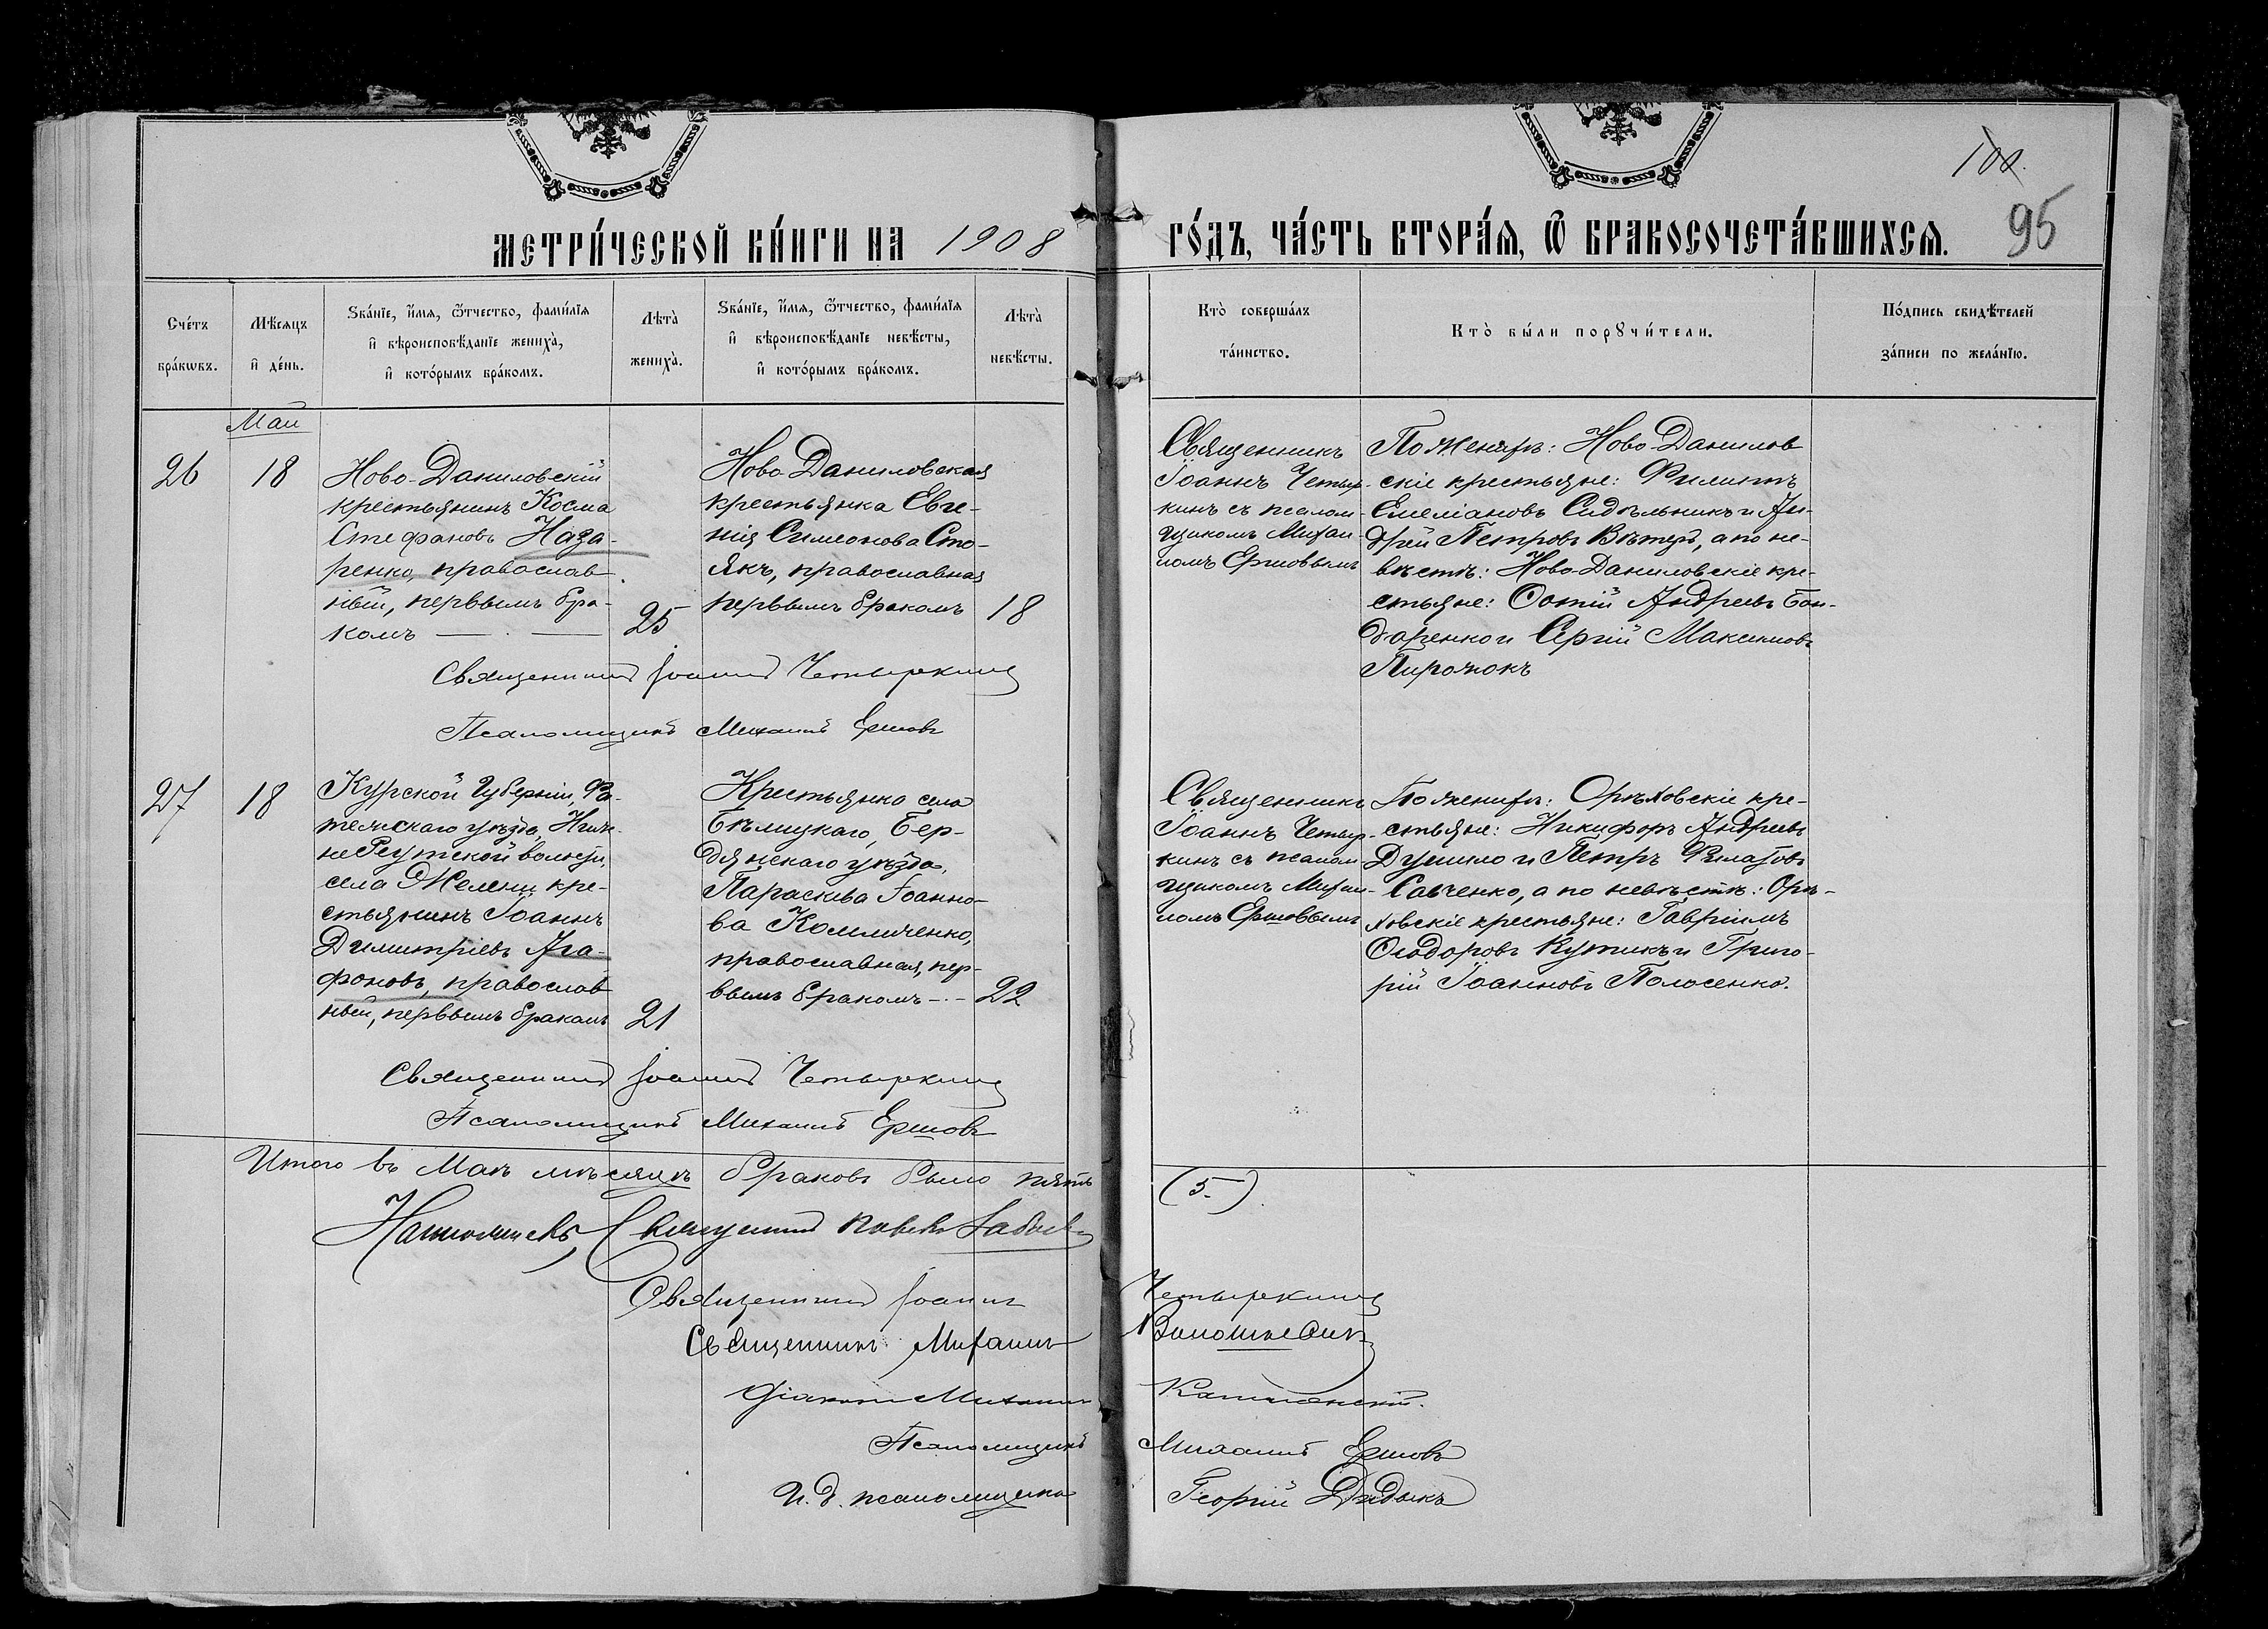 100.
95
МЕТРИ́ЧЕСКОЙ КНИ́ГИ НА 1908 ГО́ДЪ, ЧА́СТЬ ВТОРА́Я, Ѿ БРАКОСОЧЕТА́ВШИХСЯ.
Сче́тъ
бра́кѡвъ.
Мѣ́сяцъ
и҆ де́нь.
Ѕва́нїе, и҆́мя, ѻ҆́тчество, фами́лїя
и҆ вѣроисповѣ́данїе жениха̀,
и҆ кото́рымъ бра́комъ.
Лѣта̀
жениха̀.
Ѕва́нїе, и҆́мя, ѻ҆́тчество, фами́лїя
и҆ вѣроисповѣ́данїе невѣ́сты,
и҆ кото́рымъ бра́комъ.
Лѣта̀
невѣ́сты.
Кто̀ соверша́лъ
та́инство.
Кто̀ бы́ли порꙋчи́тели.
По́дпись свидѣ́телей
за́писи по жела́нїю.
Май
26
18
Ново-Даниловскій
крестьянинъ Косма
Стефановъ Наза-
ренко, православ-
ный, первымъ бра-
комъ — . —
25
Ново Даниловская
крестьянка Евге-
нія Симеонова Сто-
якъ, православная
первымъ бракомъ
18
Священникъ
Іоаннъ Четыр-
кинъ съ псалом-
щикомъ Михаи-
ломъ Ершовымъ
По женихѣ: Ново Данилов
скіе крестьяне: Филиппъ
Емеліановъ Сидѣльникъ и Ан-
дрей Петровъ Вѣтеръ, а по не-
вѣстѣ: Ново-Даниловскіе кре-
стьяне: Фотій Андреевъ Бон-
даренко и Сергій Максимовъ
Пирожокъ
Священникъ Іоаннъ Четыркинъ
Псаломщикъ Михаилъ Ершовъ
27
18
Курской Губерніи, Фа-
тежскаго уѣзда, Ниж-
не Реутской волости,
села Желени кре-
стьянинъ Іоаннъ
Димитріевъ Ага-
фоновъ, православ
ный, первымъ бракомъ
21
Крестьянка села
Бѣлицкаго, Бер-
дянскаго уѣзда,
Параскева Іоанно-
ва Коломиченко,
православная, пер-
вымъ бракомъ -.-
22
Священникъ
Іоаннъ Четыр-
кинъ съ псалом-
щикомъ Михаи-
ломъ Ершовымъ
По женихѣ: Орѣховскіе кре-
стьяне: Никифоръ Андреевъ
Душило и Петръ Филатовъ
Савченко, а по невѣстѣ: Орѣ-
ховскіе крестьяне: Гавріилъ
Ѳеодоровъ Кутикъ и Григо-
рій Іоанновъ Полосенко.
Священникъ Іоаннъ Четыркинъ
Псаломщикъ Михаилъ Ершовъ
Итого въ Маѣ мѣсяцѣ браковъ было пять (5.)
Священникъ Павелъ
Священникъ Іоаннъ Четыркинъ
Священникъ Михаилъ
Діаконъ Михаилъ
Псаломщикъ Михаилъ Ершовъ
И. д. псаломщика Георгій Дидыкъ